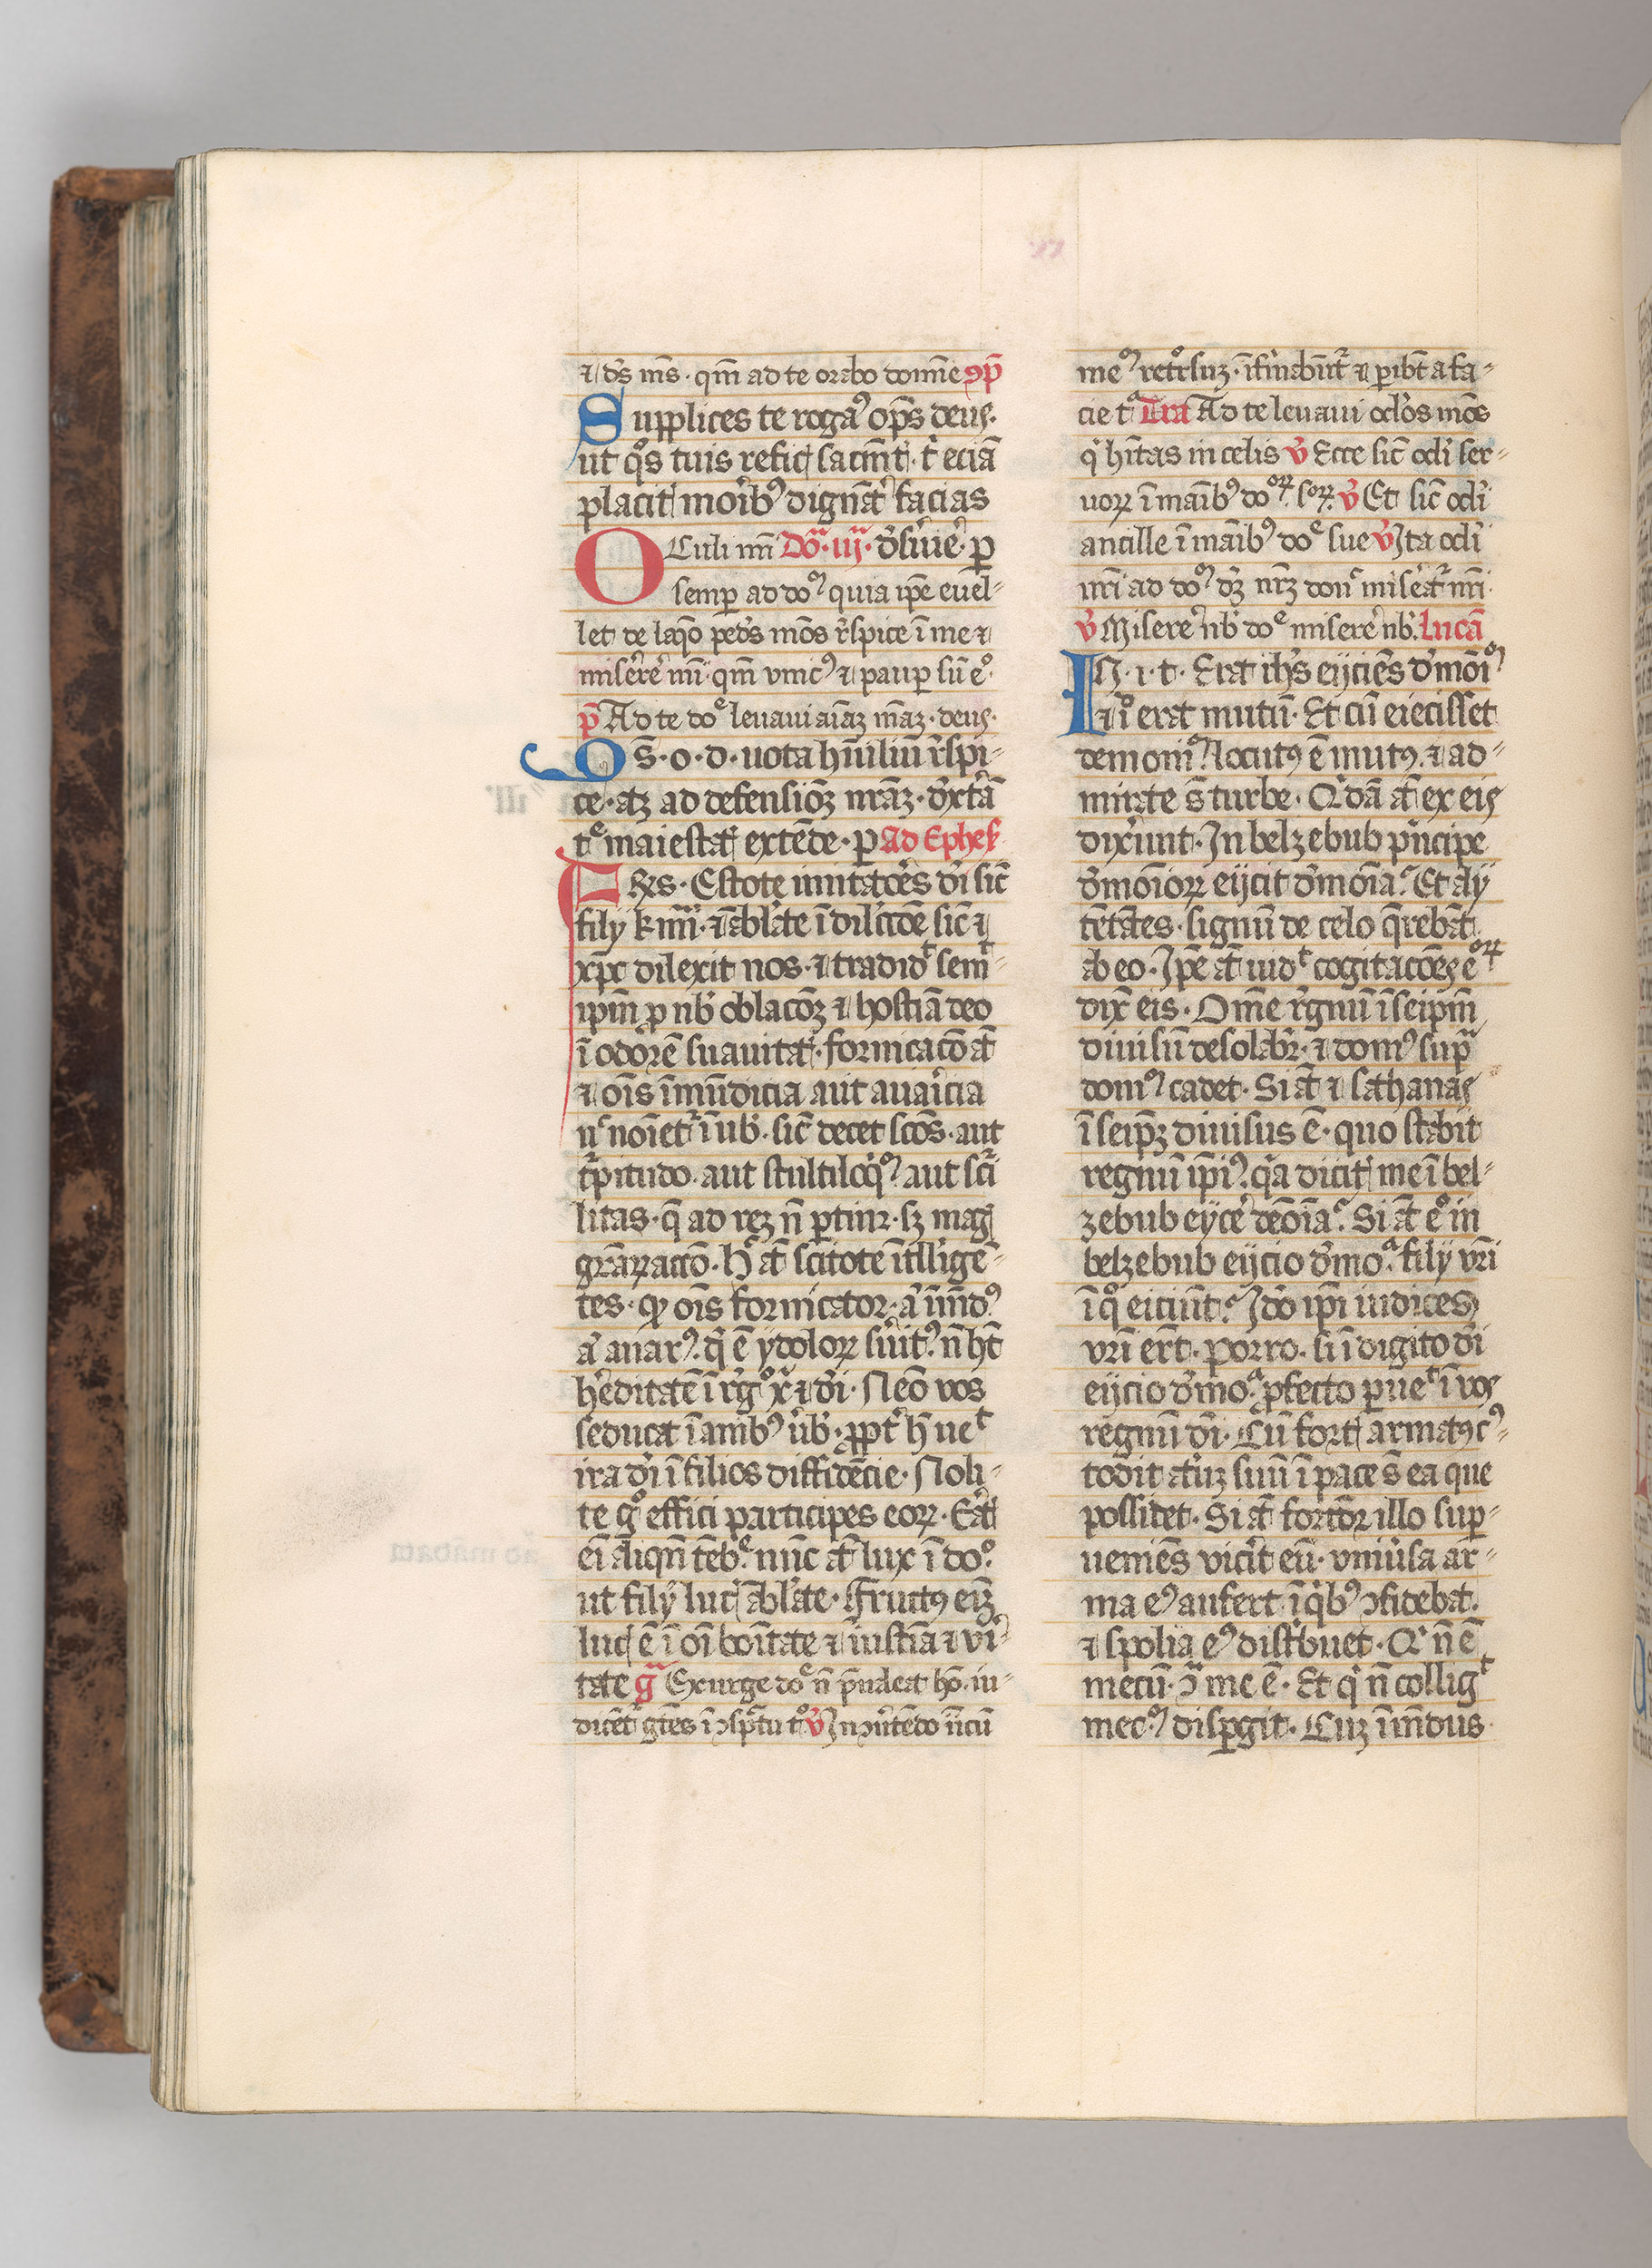 ⁊ dš mš · qm̄ ad te orabo domīe ꝯp̄
Supplices te roga᷒ op̄s deus·
ut qͦs tuis reficꝭ sacm̄tꝭ · t᷑ eciā
placitꝭ morib᷒ dignāt᷑ facias
Oculi mī Doᷓ · iijᷓ · d᷑sīne᷑ · ꝑ
semꝑ ad do᷒ quia ip̄e euel-
let de laq̄o ped᷑s mōs r᷑spice ī me ⁊
miser᷑e᷑ mī · qm̄ vnic᷒ ⁊ pauꝑ sū eͦ·
p̄ Ad te doͤ leuaui aīaꝫ māꝫ · deus·
Ds̄ · o · d · uota hūiliū r᷑spi-
ce · atꝫ ad defensiōꝫ nrāꝫ · dᷓxt᷑ā
tͤ maiestatꝭ extēde · ꝑ Ad Ephes᷑
Fr̄es · Estote imitatōr̄es dī sic̄
filij kmī · ⁊ ābl᷑ate ī dil᷑ccōe sic̄ ⁊
xp̄c dilexit nos · ⁊ tradidᵗ semᵗ-
ipm̄ ꝓ nb᷑ oblacōꝫ ⁊ hostiā deo
ī odorē suauitatꝭ · fornicacō at̄
⁊ oīs īmūdicia aut auar᷑icia
nͨ noīet᷑ ī ub᷑ · sic̄ decet scōs · aut
t᷑pitudo · aut stultiloq᷒ aut sc᷑i
litas · q̄ ad reꝫ n̄ ꝑtinꝫ · sꝫ magꝭ
grāꝝaccō · hͨ at̄ scitote ītll᷑ige-
tes · qꝫ oīs fornicator · aͥ īm̄d᷒
aͥ auar᷒ · qͩ ē ydoloꝝ s᷑uit᷒ · n̄ ht̄
h᷑editatē ī r᷑gͦ xͥ ⁊ dī · Nēo vos
seducat īanib᷒ u᷑b᷑ · ꝓpt᷑ h̄ ueᵗ
ira dī ī filios diffidēcie · Noli-
te gͦ effici participes eoꝝ · Eratꝭ
eī aliqn̄ tēbͤ · nūc at̄ lux ī doͦ ·
ut filij lucꝭ ābl᷑ate · Fructus eīꝫ
lucꝭ ē ī oī boītate ⁊ iusticia ⁊ v᷑i-
tate gᷓ Exurge doͤ n̄ p̄ualeat hō · iu-
dicēt᷑ gētes ī ꝯsp̄tu tͦ v᷑ In ꝯu᷑tēdo īīcū
me᷒ ret᷑rsuꝫ · īfirmabūt᷑ ⁊ ꝑibūt a fa-
cie tᷓ Tra Ad te leuaui ocl᷑os mōs
qͥ hītas in celis v᷑ Ecce sic̄ ocl᷑i ser-
uoꝝ ī maīb᷒ doᵒꝝ soꝝ · v᷑ Et sic̄ ocl᷑i
ancille ī maīb᷒ doͤ sue v᷑ Ita ocl᷑i
nr̄i ad do᷒ dꝫ nrꝫ donͨ miseat᷑ nr̄i·
v᷑ Misere᷑ nb᷑ doͤ misere᷑ nb᷑ · Lucā
In · i · t · Erat ihs̄ eijciēs d᷑moī᷒
⁊ iͦ erat mutū · Et cū eiecisset
demoni᷒ locutus ē mutus · ⁊ ad-
mirate s̄ turbe · Qͥdā at̄ ex eis
dixe᷑unt · In belzebub p᷑ncipe
d᷑monioꝝ eijcit d᷑monia · Et alij
tētātes · signū de celo q̄rebāt
ab eo · Ip̄e at̄ uidᵗ cogitacōes eᵒꝝ
dix̄ eis · Om̄e r᷑gnū ī seip̄m
diuisū desolab᷑r · ⁊ dom᷒ supᷓ
dom᷒ cadet · Si at̄ ⁊ sathanas
ī seip̄ꝫ diuisus ē · quo stabit
regnū ip̄i᷒ · qᷓ dicitꝭ me ī bel-
zebub eijce᷑ deōia · Si at̄ eͦ in
belzebub eijcio d᷑moᷓ · filij vr̄i
ī qͦ eiciūt · Iđo ip̄i iudices
vr̄i er̄t · porro · si ī digito dī
eijcio d᷑moᷓ · ꝓfecto ꝑueᵗ ī vos
regnū dī · Cū fortꝭ armatus c᷒-
todit at᷑iꝫ suū ī pace s̄ ea que
possidet · Si at̄ fortior illo suꝑ-
ueniēs vic᷑it eū · vniu᷑sa ar-
ma e᷒ aufert ī qͥb᷒ ꝯfidebat·
⁊ spolia e᷒ dist᷑buet · Qͥ n̄ ē
mecū · ꝯᷓ me ē · Et qͥ n̄ colligᵗ
mec᷒ · disꝑgit · Cuꝫ īmūdus